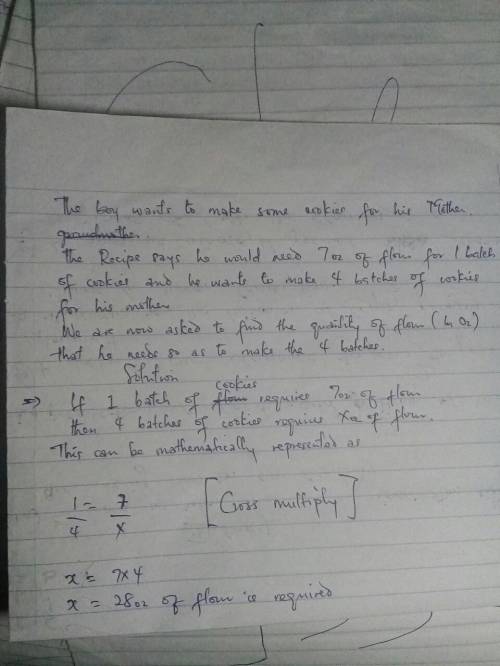 The boy wants to make some cookies for his Mother.
grandmother.
The Recipe says he would need 7oz of flour for 1 batch
of cookies and he wants to make 4 batches of cookies
for his mother
We are now asked to find the quantity of flour (in Oz)
that he needs so as to make the 4 batches.
Solution
cookies
=) If 1 batch of flour requires 7oz of flour
then 4 batches of cookies requires Xoz of flour.
This can be mathematically represented as
1/4 = 7/x [Cross multiply]
x = 7x4
x = 28oz of flour is required